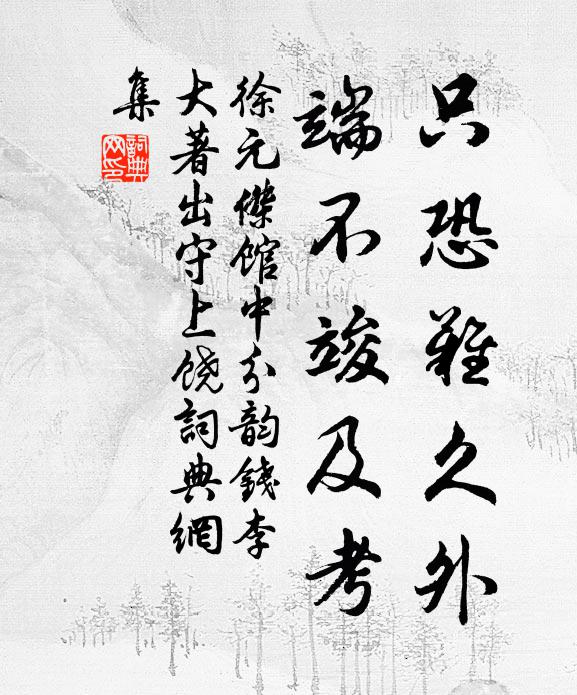 只恐难久外
端不竣及考
徐元傑馆中分韵錢李
大著出守上饶詞典網
集
詞典
网印